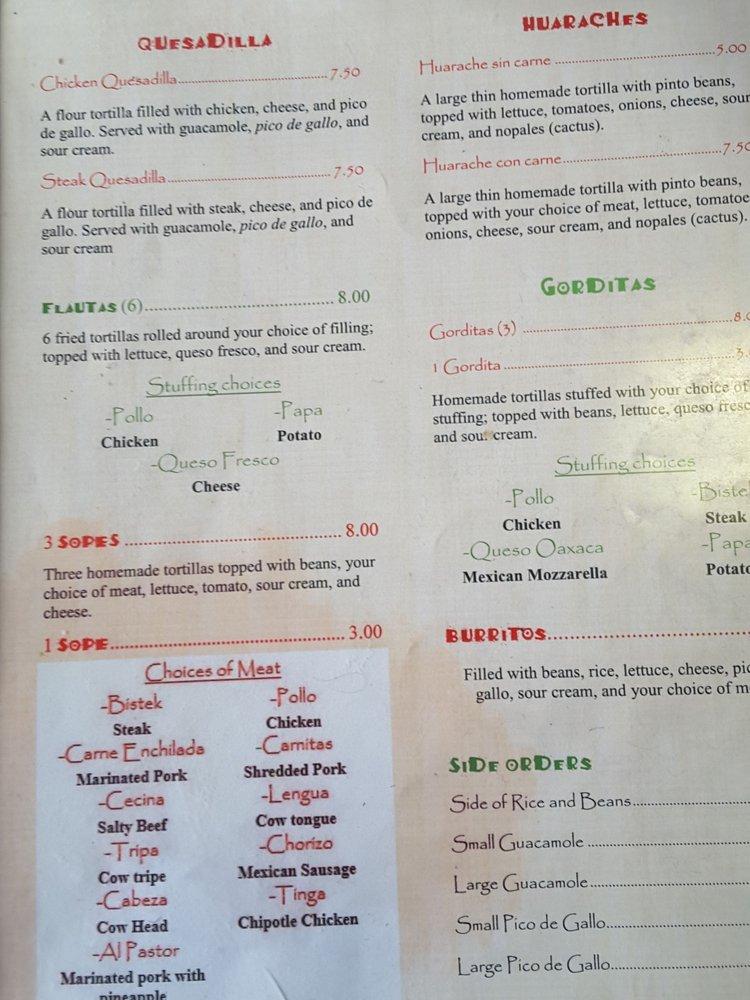 QUESADILLA
Chicken Quesadilla ... 7.50
A flour tortilla filled with chicken, cheese, and pico
de gallo. Served with guacamole, pico de gallo, and
sour cream.
Steak Quesadilla ... 7.50
A flour tortilla filled with steak, cheese, and pico de
gallo. Served with guacamole, pico de gallo, and
sour cream
FLAUTAS (6) ... 8.00
6 fried tortillas rolled around your choice of filling;
topped with lettuce, queso fresco, and sour cream.
Stuffing choices
-Pollo -Papa
Chicken Potato
-Queso Fresco
Cheese
3 SOPES ... 8.00
Three homemade tortillas topped with beans, your
choice of meat, lettuce, tomato, sour cream, and
cheese.
1 SOPE ... 3.00
Choices of Meat
-Bistek -Pollo
Steak Chicken
-Carne Enchilada -Carnitas
Marinated Pork Shredded Pork
-Cecina -Lengua
Salty Beef Cow tongue
-Tripa -Chorizo
Cow tripe Mexican Sausage
-Cabeza -Tinga
Cow Head Chipotle Chicken
-Al Pastor
Marinated pork with
pineapple
HUARACHES
Huarache sin carne ... 5.00
A large thin homemade tortilla with pinto beans,
topped with lettuce, tomatoes, onions, cheese, sour
cream, and nopales (cactus).
Huarache con carne ... 7.50
A large thin homemade tortilla with pinto beans,
topped with your choice of meat, lettuce, tomatoe
onions, cheese, sour cream, and nopales (cactus).
GORDITAS
Gorditas (3) ... 8.
1 Gordita ... 3.
Homemade tortillas stuffed with your choice of
stuffing; topped with beans, lettuce, queso fresc
and sour cream.
Stuffing choices
-Pollo -Biste
Chicken Steak
-Queso Oaxaca -Papa
Mexican Mozzarella Potato
BURRITOS...
Filled with beans, rice, lettuce, cheese, pic
gallo, sour cream, and your choice of m
SIDE ORDERS
Side of Rice and Beans...
Small Guacamole ...
Large Guacamole ...
Small Pico de Gallo...
Large Pico de Gallo...